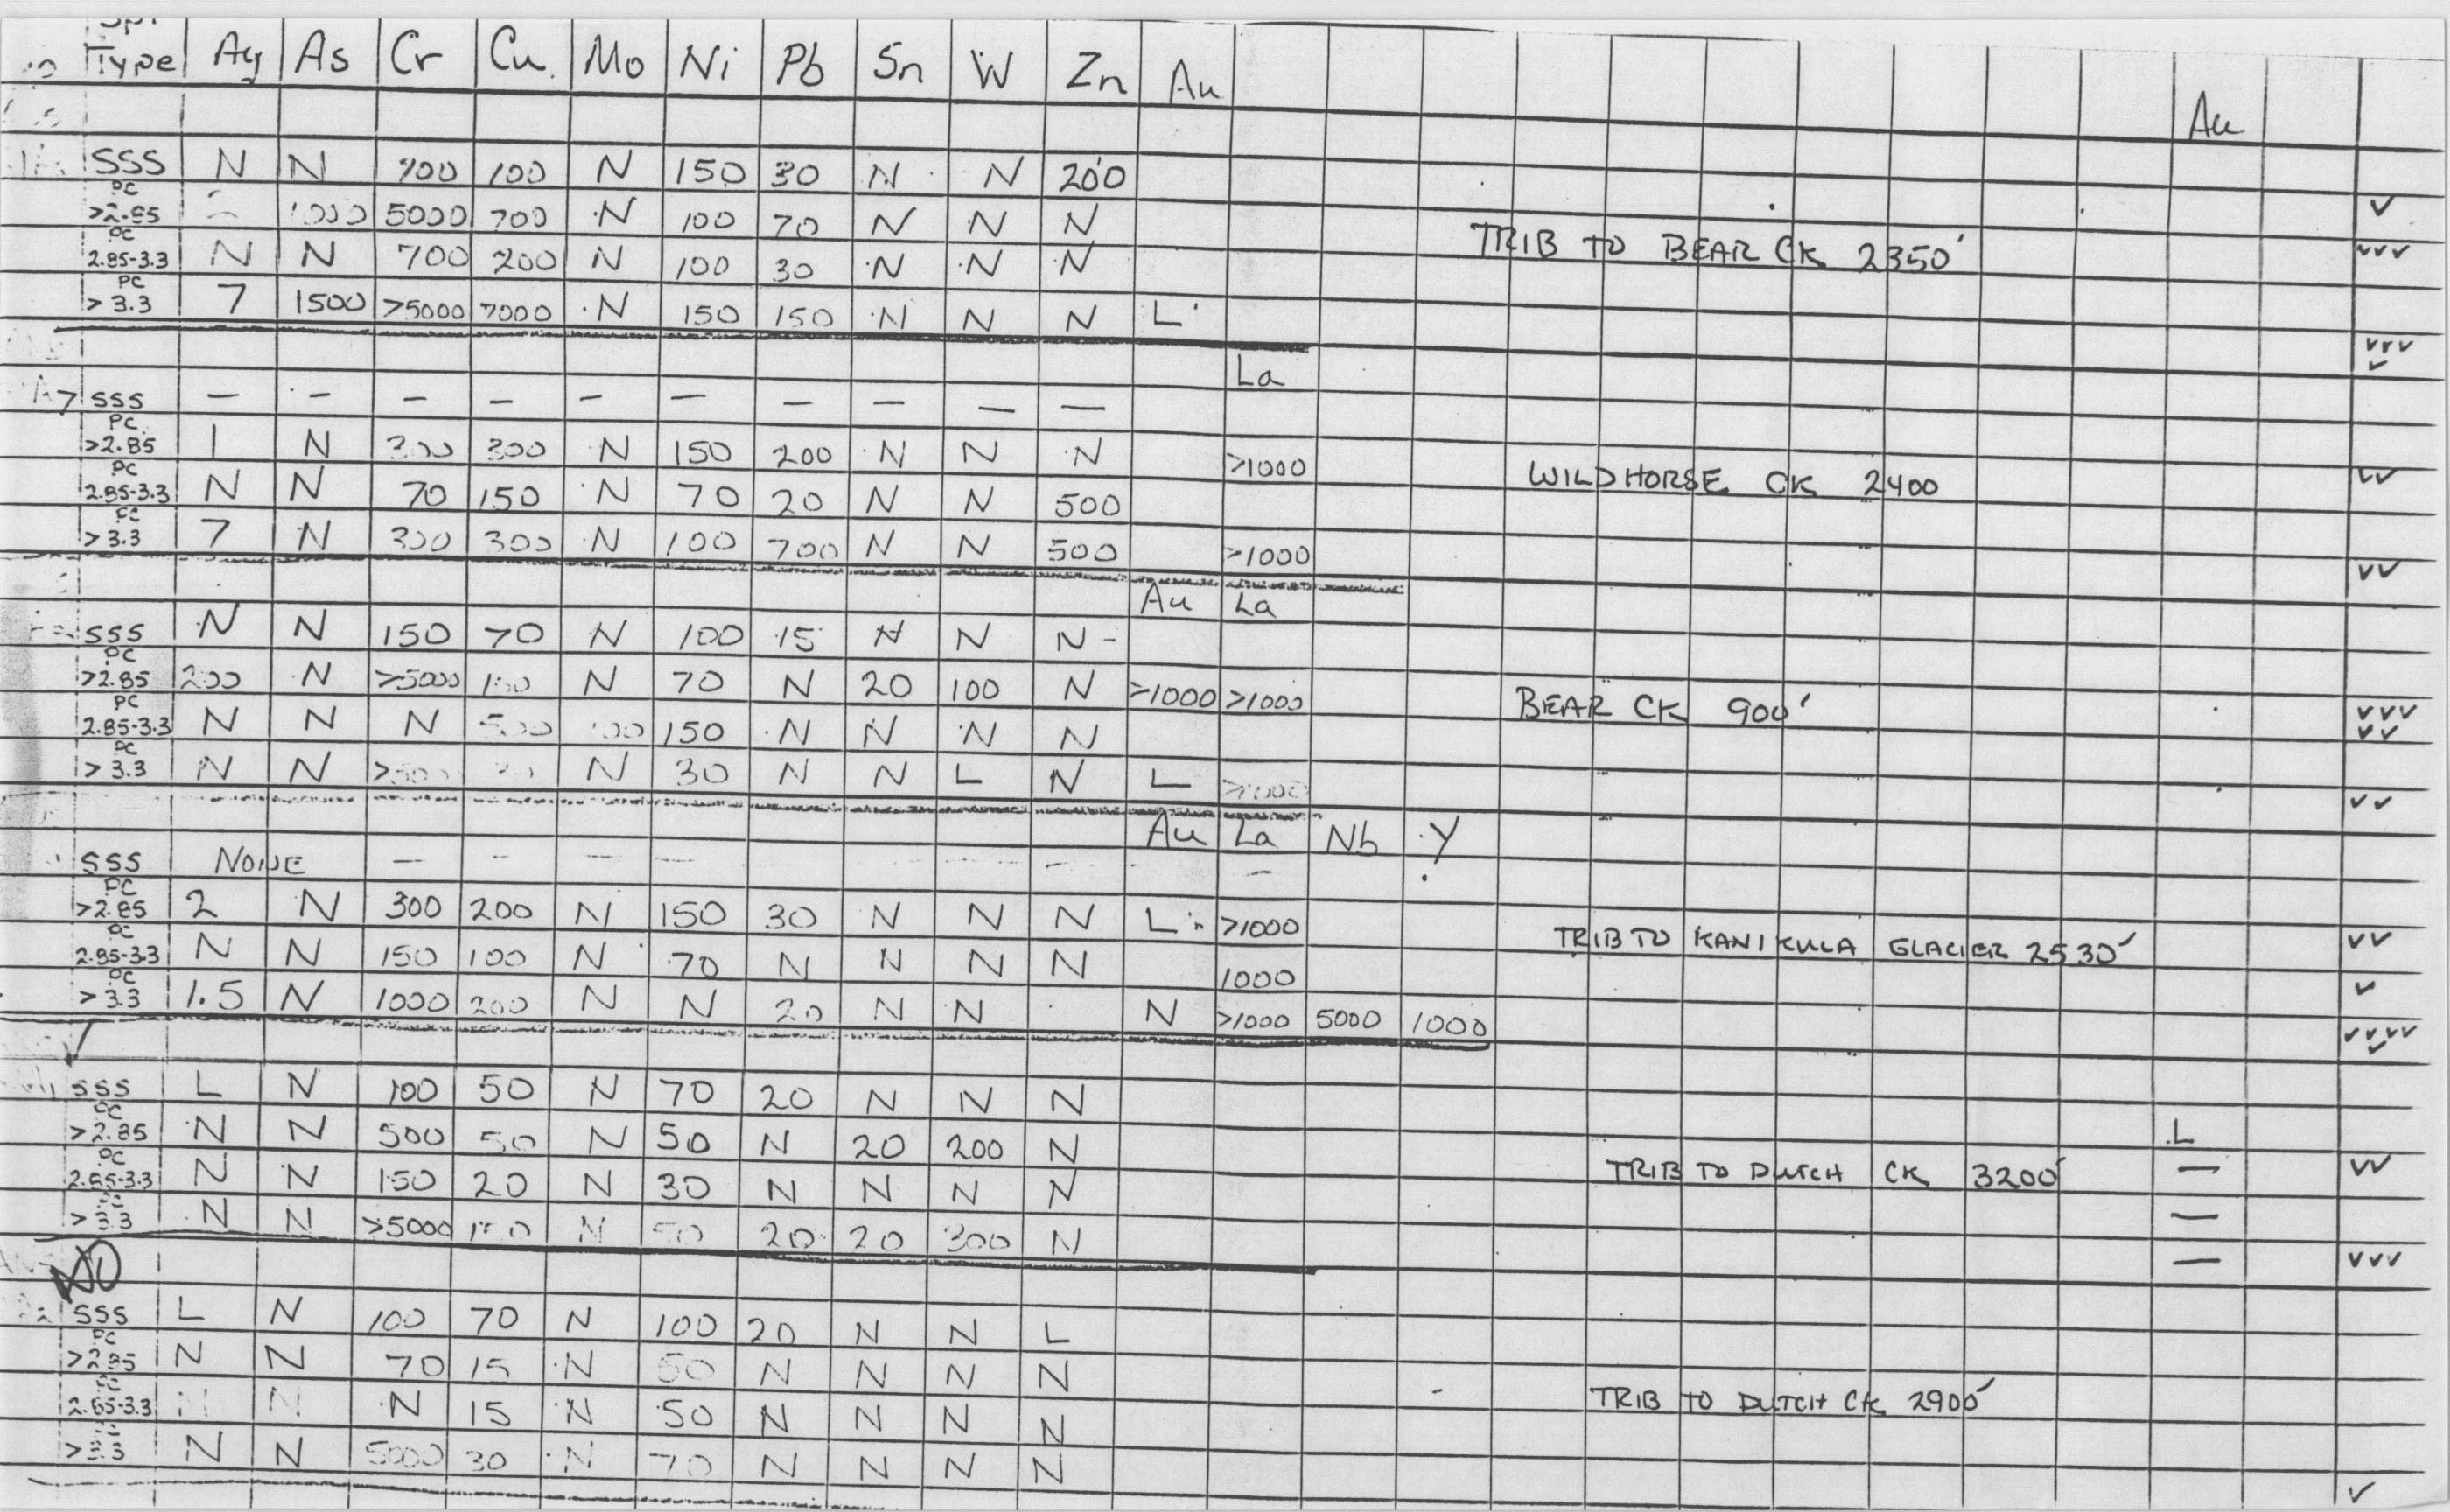 Type Ag As Cr Cu Mo Ni Pb Sn W Zn Au
Au
SSS N N 700 100 N 150 30 N N 200
PC
>2.85 1000 5000 700 N 100 70 N N N ✓
PC
2.85-3.3 N N 700 200 N 100 30 N N N TRIB TO BEAR CK 2350' ✓✓✓
PC
>3.3 7 1500 >5000 7000 N 150 150 N N N L ✓✓✓
✓
La
7 SSS — — — — — — — — — —
PC
>2.85 1 N 300 300 N 150 200 N N N >1000
PC
2.85-3.3 N N 70 150 N 70 20 N N 500 WILDHORSE CK 2400 ✓✓
PC
>3.3 7 N 300 300 N 100 700 N N 500 >1000 ✓✓
Au La
SSS N N 150 70 N 100 15 N N N
PC
>2.85 200 N >5000 150 N 70 N 20 100 N >1000 >1000 BEAR CK 900' ✓✓✓
PC
2.85-3.3 N N N 500 150 N N N N ✓✓
PC
>3.3 N N N 30 N N L N L >1000 ✓✓
Au La Nb Y
SSS NONE — — — — — — — — —
PC
>2.85 2 N 300 200 N 150 30 N N N L >1000 TRIB TO KANIKULA GLACIER 2530' ✓✓
PC
2.85-3.3 N N 150 100 N 70 N N N N 1000 ✓
PC
>3.3 1.5 N 1000 200 N N 20 N N N >1000 5000 1000 ✓✓✓✓
✓
✓
SSS L N 100 50 N 70 20 N N N L
PC
>2.85 N N 500 50 N 50 N 20 200 N TRIB TO DUTCH CK 3200' — ✓✓
PC
2.85-3.3 N N 150 20 N 30 N N N N —
PC
>3.3 N N >5000 150 N 50 20 20 300 N — ✓✓✓
NO
SSS L N 100 70 N 100 20 N N L
PC
>2.85 N N 70 15 N 50 N N N N
PC
2.85-3.3 N N N 15 N 50 N N N N TRIB TO DUTCH CK 2900'
PC
>3.3 N N 5000 30 N 70 N N N N ✓